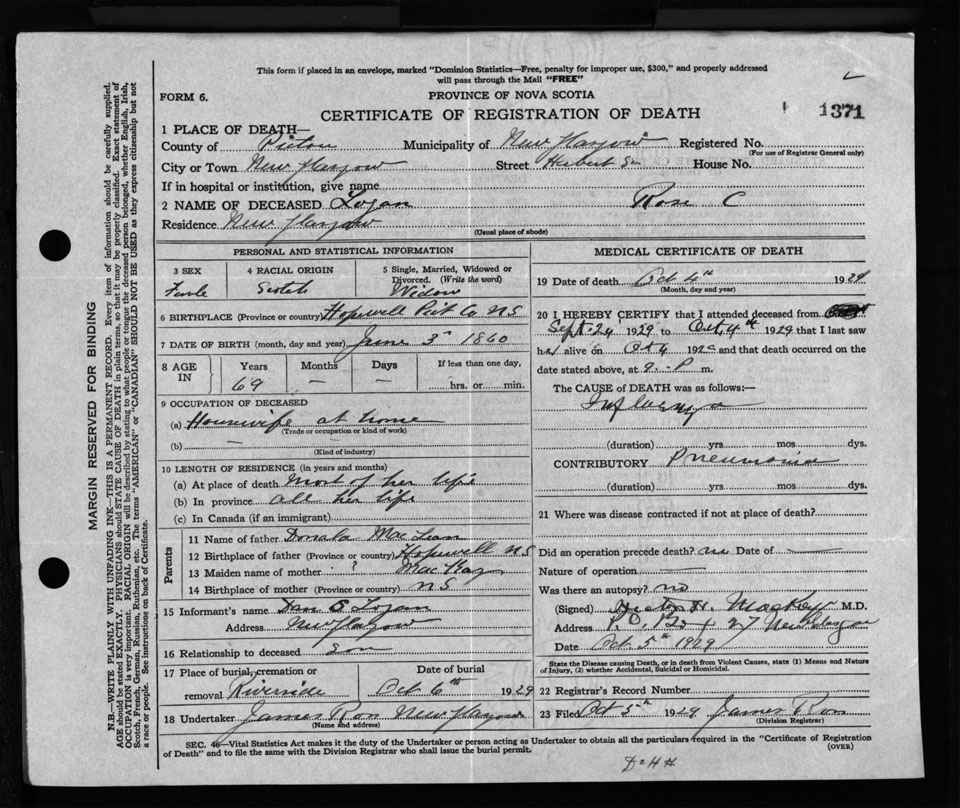 This form if placed in an envelope, marked "Dominion Statistics—Free, penalty for improper use, $300," and properly addressed
will pass through the Mail "FREE"
FORM 6.
PROVINCE OF NOVA SCOTIA
CERTIFICATE OF REGISTRATION OF DEATH
1371
1 PLACE OF DEATH—
County of Pictou Municipality of New Glasgow Registered No.
(For use of Registrar General only)
City or Town New Glasgow Street Herbert St House No.
If in hospital or institution, give name
2 NAME OF DECEASED Logan Rose C
Residence New Glasgow
(Usual place of abode)
PERSONAL AND STATISTICAL INFORMATION
3 SEX
Female
4 RACIAL ORIGIN
Scotch
5 Single, Married, Widowed or
Divorced. (Write the word)
Widow
6 BIRTHPLACE (Province or country) Hopewell Pict Co NS
7 DATE OF BIRTH (month, day and year) June 3 1860
8 AGE
IN
Years
69
Months
—
Days
—
If less than one day,
hrs. or min.
9 OCCUPATION OF DECEASED
(a) Housewife at home
(Trade or occupation or kind of work)
(b) —
(Kind of industry)
10 LENGTH OF RESIDENCE (in years and months)
(a) At place of death Most of her life
(b) In province all her life
(c) In Canada (if an immigrant)
Parents
11 Name of father Donald MacLean
12 Birthplace of father (Province or country) Hopewell NS
13 Maiden name of mother ? MacKay
14 Birthplace of mother (Province or country) NS
15 Informant's name Dan C Logan
Address New Glasgow
16 Relationship to deceased son
17 Place of burial, cremation or
removal Riverside
Date of burial
Oct 6th 1929
18 Undertaker James Ross New Glasgow
(Name and address)
MEDICAL CERTIFICATE OF DEATH
19 Date of death Oct 4th 1929
(Month, day and year)
20 I HEREBY CERTIFY that I attended deceased from
Sept. 24 1929 to Oct 4th 1929 that I last saw
her alive on Oct 4 1929 and that death occurred on the
date stated above, at 9 P m.
The CAUSE of DEATH was as follows:—
Influenza
(duration) yrs mos dys.
CONTRIBUTORY Pneumonia
(duration) yrs. mos. dys.
21 Where was disease contracted if not at place of death?
Did an operation precede death? no Date of —
Nature of operation —
Was there an autopsy? no
(Signed) H. MacKay M.D.
Address P.O. Box 27 New Glasgow
Date Oct. 5th 1929
State the Disease causing Death, or in death from Violent Causes, state (1) Means and Nature
of Injury, (2) whether Accidental, Suicidal or Homicidal.
22 Registrar's Record Number
23 Filed Oct 5th 1929 James Ross
(Division Registrar)
SEC. 46—Vital Statistics Act makes it the duty of the Undertaker or person acting as Undertaker to obtain all the particulars required in the "Certificate of Registration
of Death" and to file the same with the Division Registrar who shall issue the burial permit.
(OVER)
MARGIN RESERVED FOR BINDING
N.B.—WRITE PLAINLY WITH UNFADING INK—THIS IS A PERMANENT RECORD. Every item of information should be carefully supplied.
AGE should be stated EXACTLY. PHYSICIANS should STATE CAUSE OF DEATH in plain terms, so that it may be properly classified. Exact statement of
OCCUPATION is very important. RACIAL ORIGIN will be described by stating to what people or race the deceased person belonged, whether English, Irish,
Scotch, French, German, Russian, Ruthenian, etc. The terms "AMERICAN" or "CANADIAN" SHOULD NOT BE USED as they express citizenship but not
a race or people. See instructions on back of Certificate.